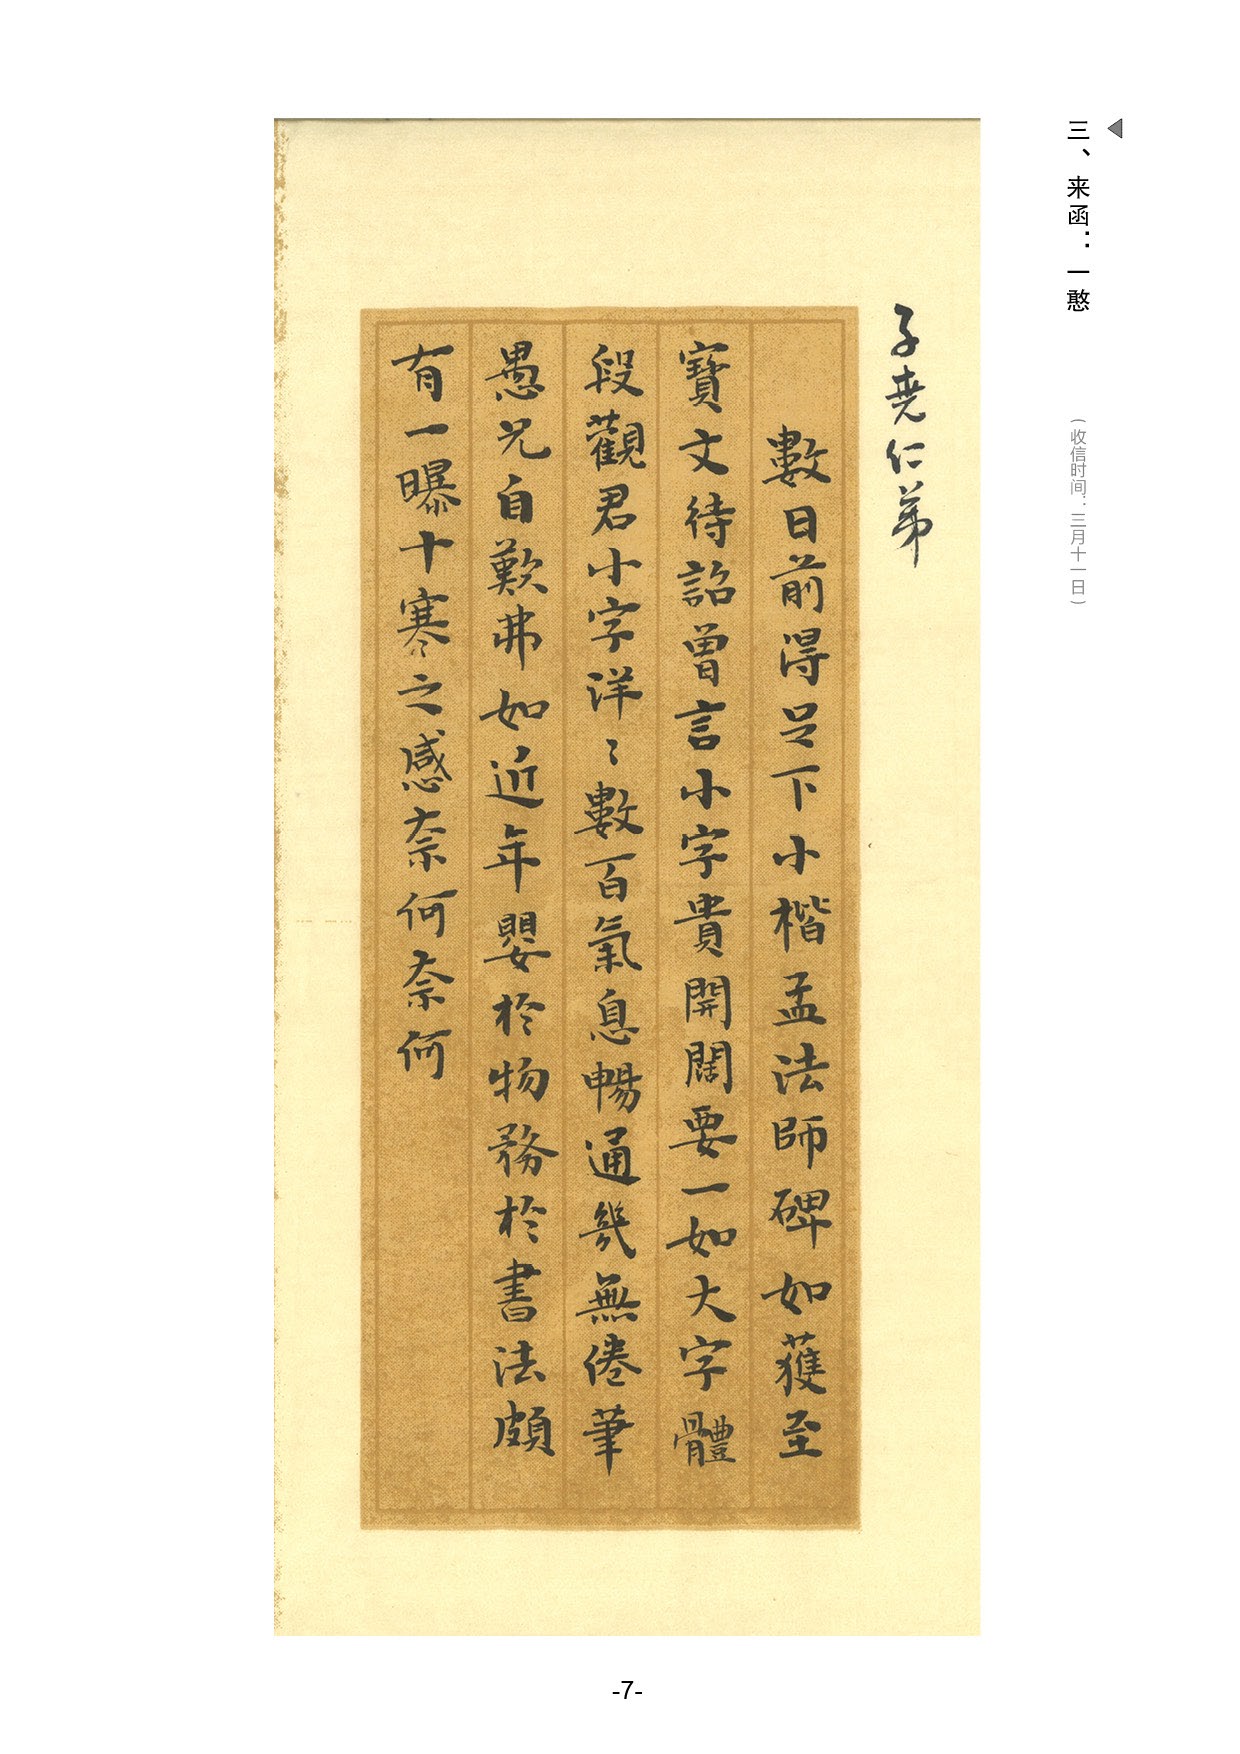 三、来函：一憨
（收信时间：三月十一日）
子尧仁弟
數日前得足下小楷孟法師碑如獲至
寶文待詔曾言小字貴開闊要一如大字體
段觀君小字洋〻數百氣息暢通幾無倦筆
愚兄自歎弗如近年嬰於物務於書法頗
有一曝十寒之感奈何奈何
-7-